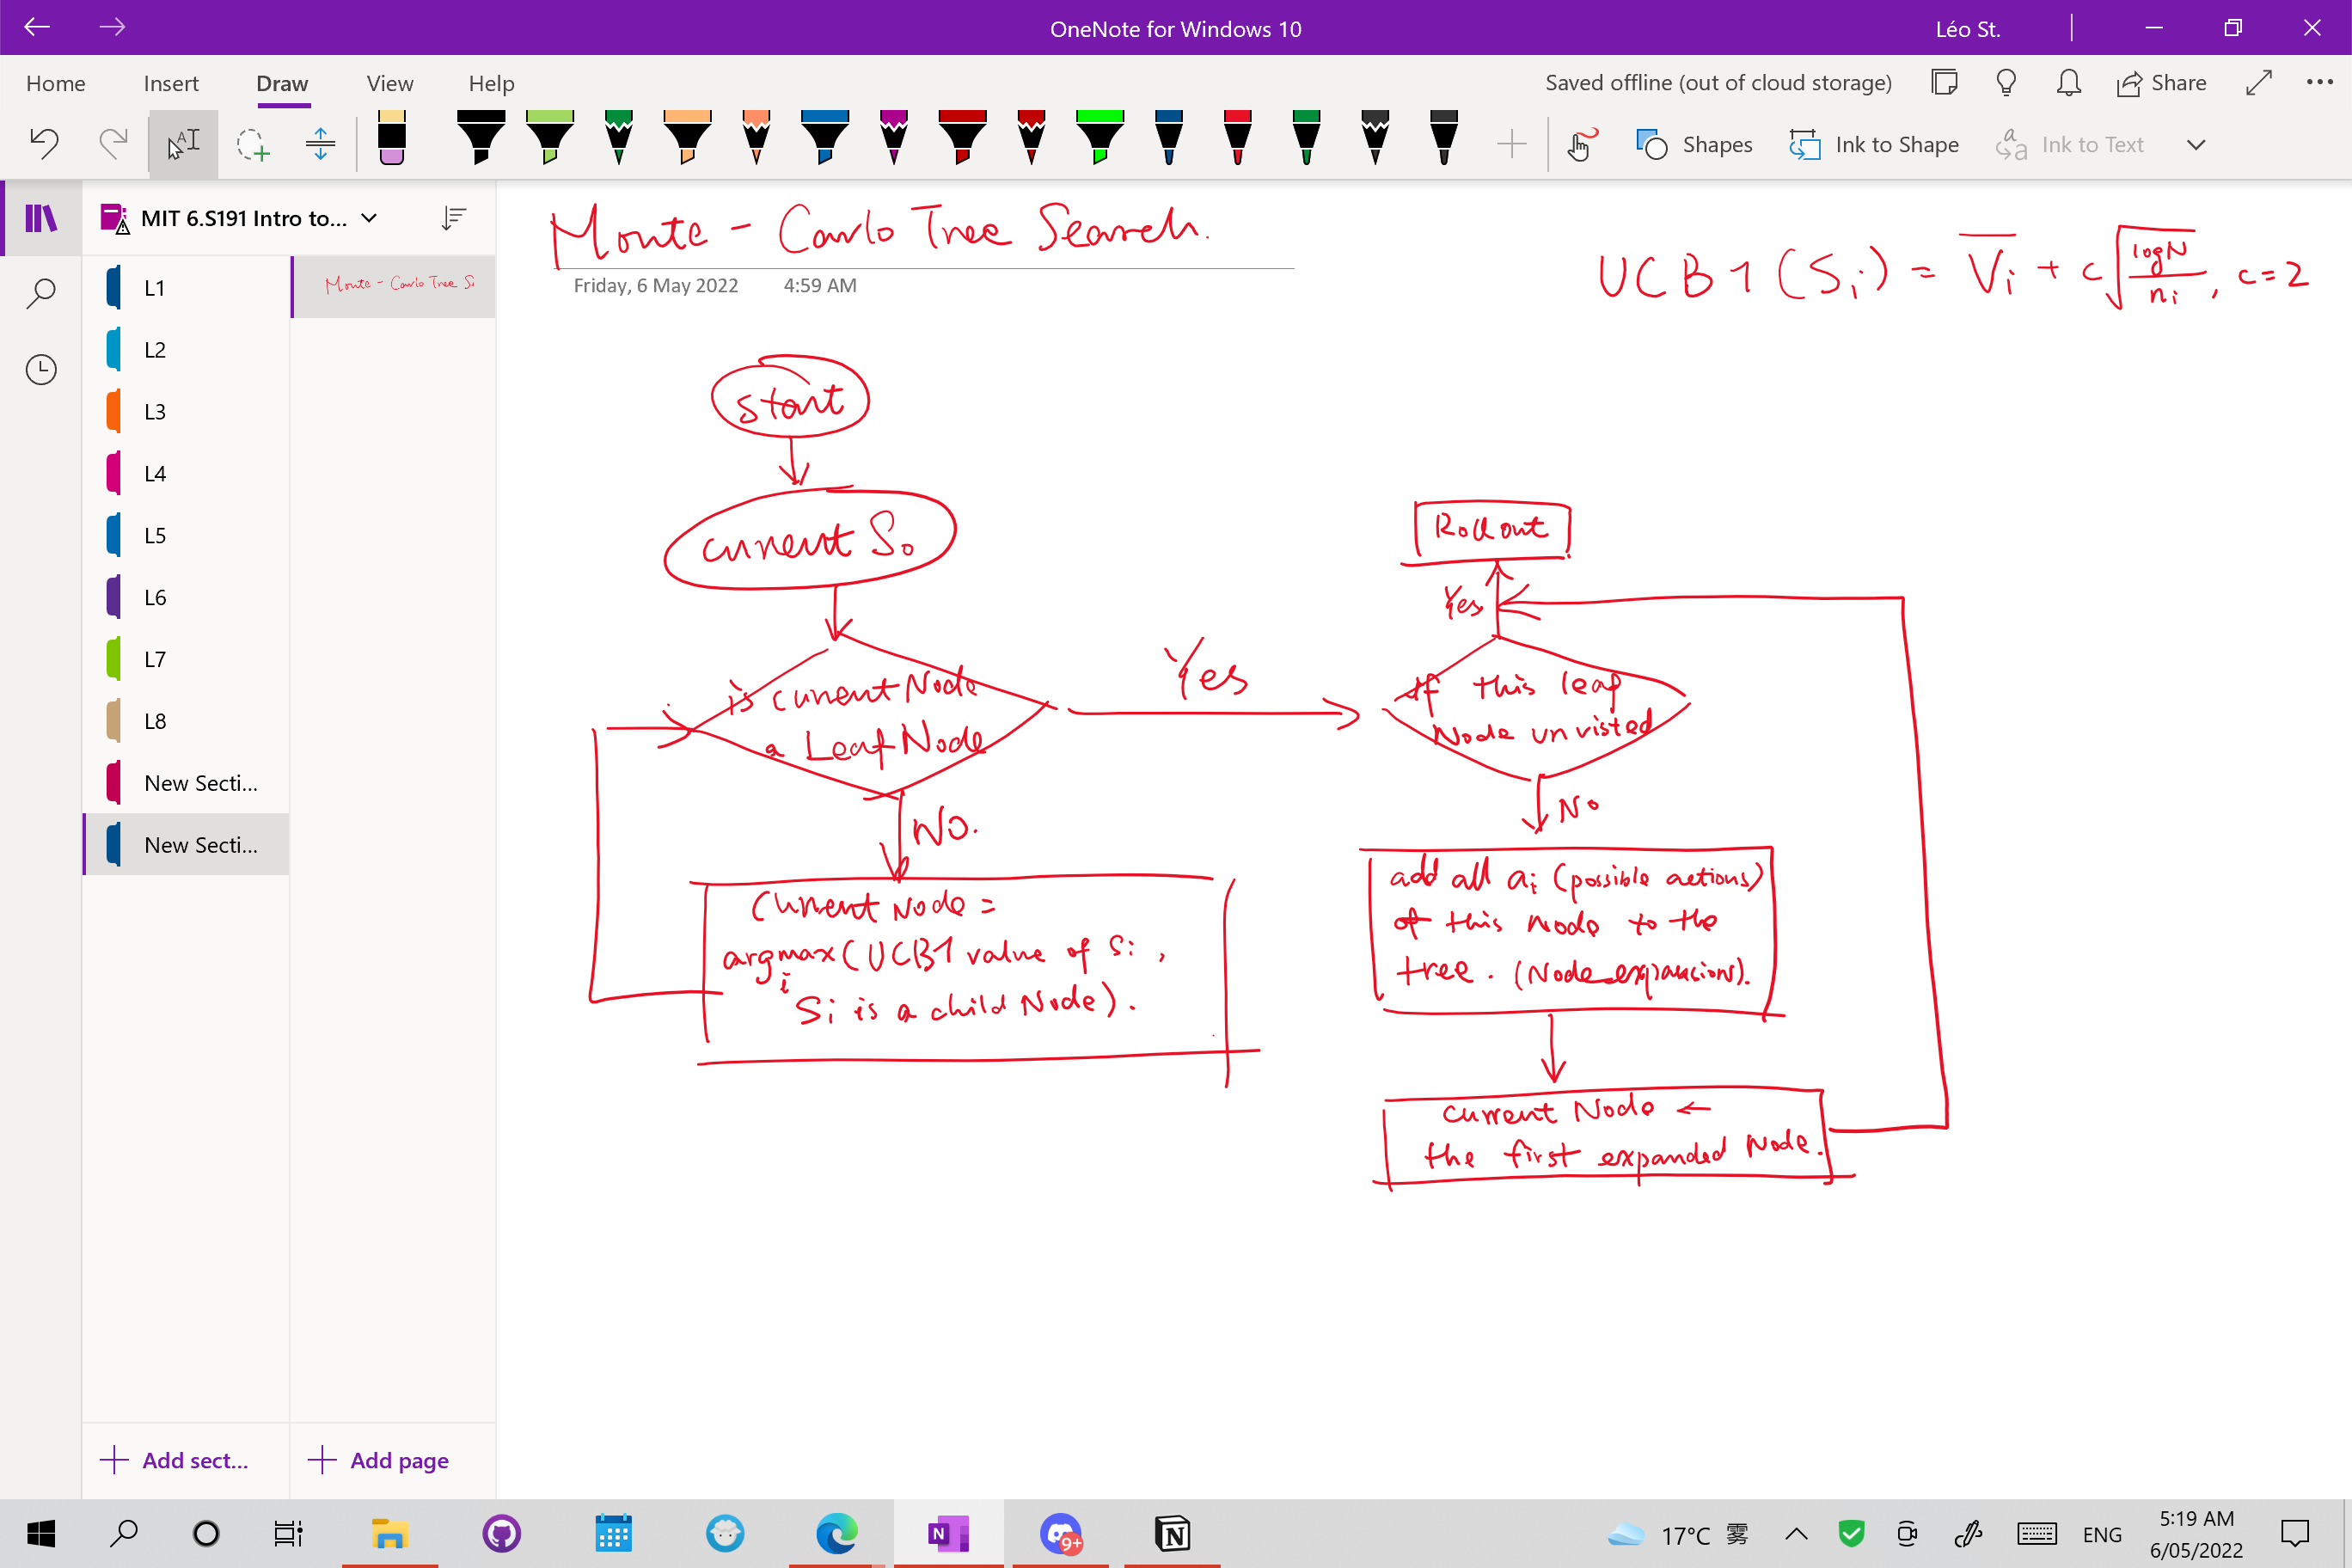 OneNote for Windows 10
Léo St.
Home
Insert
Draw
View
Help
Saved offline (out of cloud storage)
Share
Shapes
Ink to Shape
Ink to Text
MIT 6.S191 Intro to...
L1
L2
L3
L4
L5
L6
L7
L8
New Secti...
New Secti...
Add sect...
Monte - Carlo Tree S
Add page
Monte - Carlo Tree Search.
Friday, 6 May 2022 4:59 AM
UCB1 (Si) = V̅i + c√(logN/ni), c=2
start
current S₀
is current Node
a Leaf Node
Yes
NO.
Current Node =
argmax (UCB1 value of Si,
i
Si is a child Node).
Rollout
Yes
If this leaf
Node unvisted
No
add all ai (possible actions)
of this Node to the
tree. (Node expancions).
current Node ←
the first expanded Node.
N
9+
N
17°C 雾
ENG
5:19 AM
6/05/2022